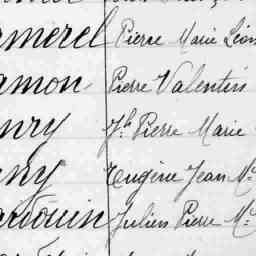 rmerel Pierre Marie Léon
amon Pierre Valentin
nry Jh Pierre Marie
ny Eugène Jean Mie
ardouin Julien Pierre Mie